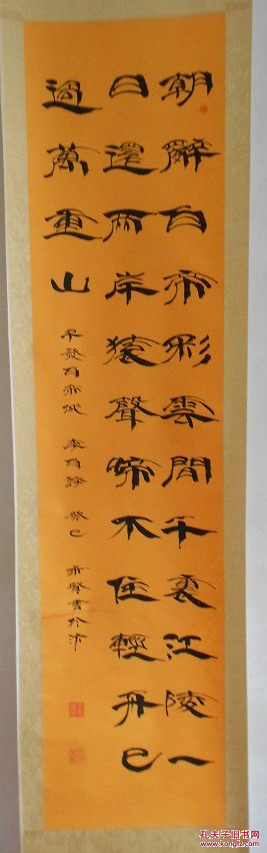 朝辭白帝彩雲間千裏江陵一
日還兩岸猿聲啼不住輕舟已
過萬重山
早發白帝城 李白詩 癸巳 書於
孔夫子旧书网
www.kongfz.com